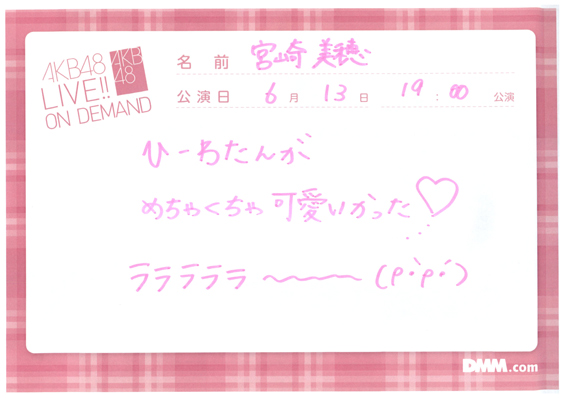 AKB48
LIVE!!
ON DEMAND
AKB
48
名前 宮崎美穂
公演日 6月13日 19:00 公演
ひーわたんが
めちゃくちゃ可愛いかった♡
ラララララ 〜〜〜 (ρ・̀ρ・́)
DMM.com